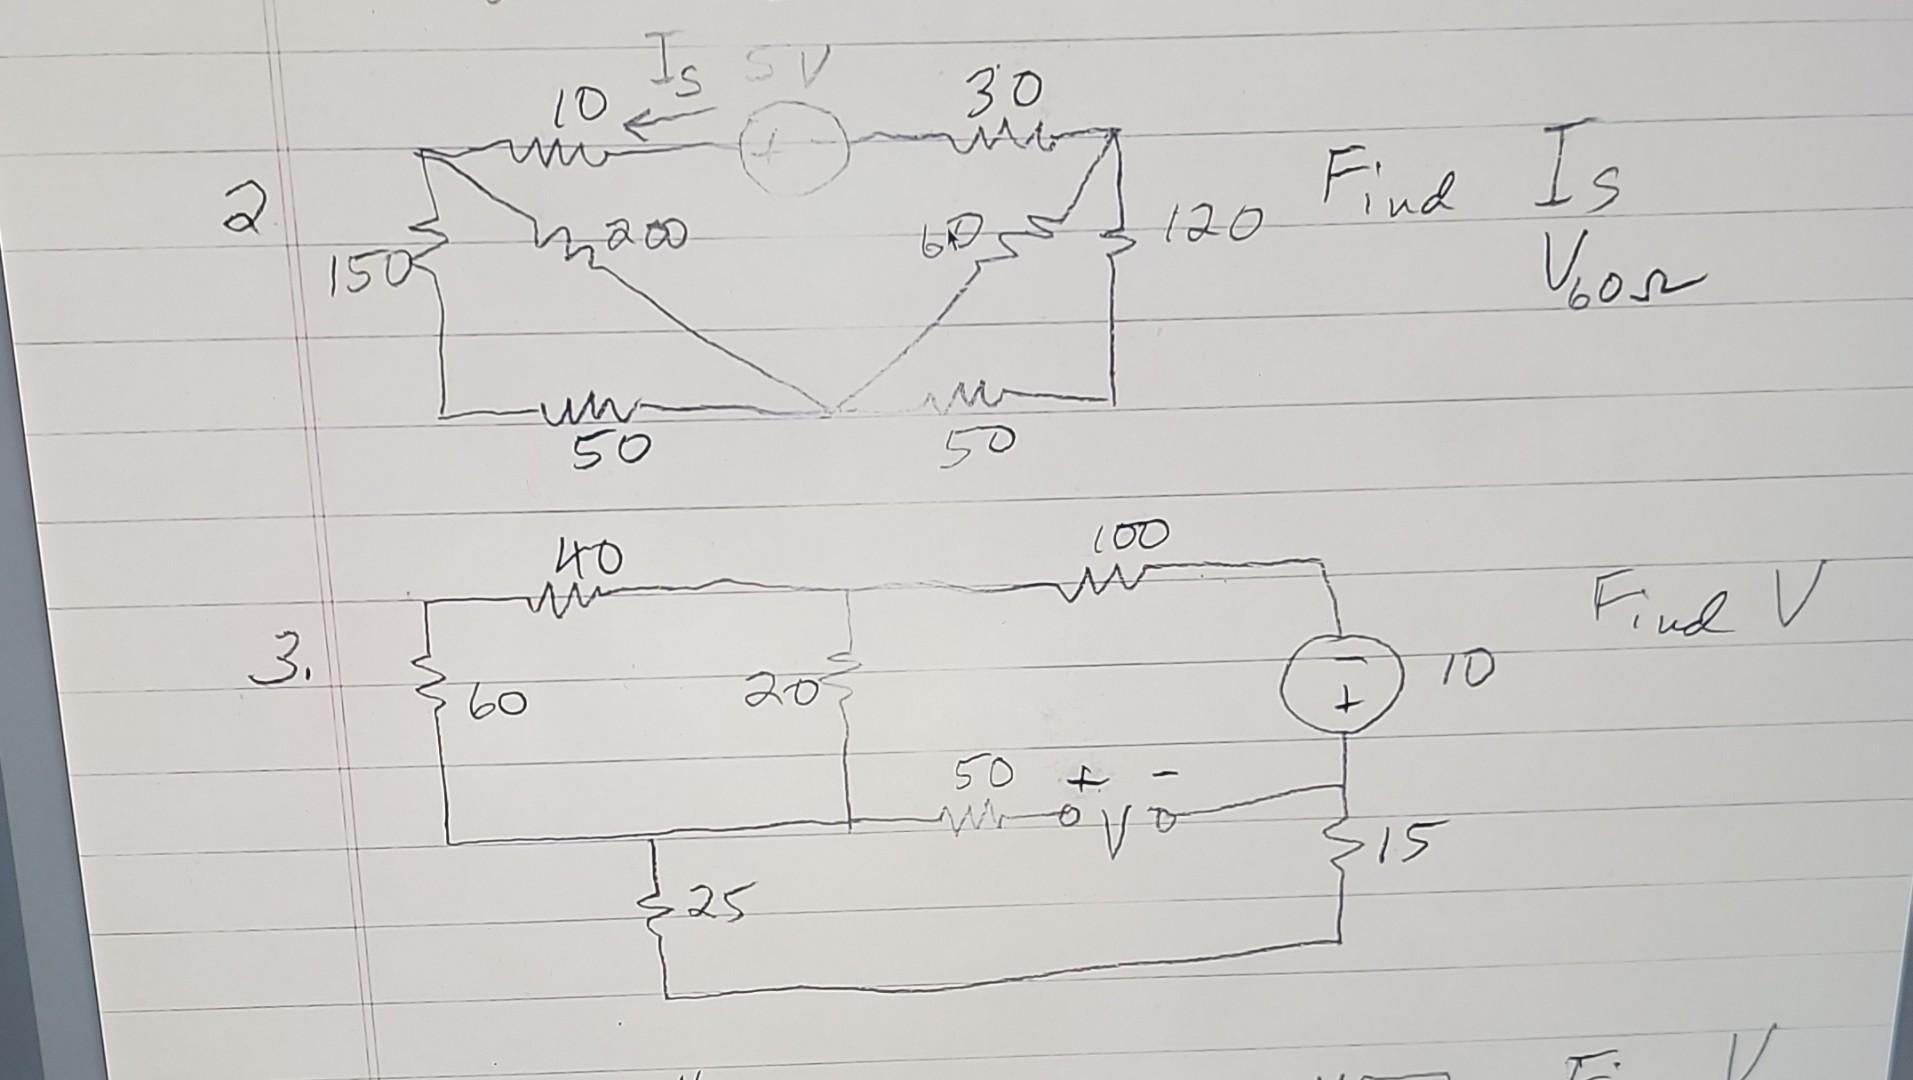 Is 5V
10 30
2 Find Is
200 60 120
150 V60Ω
50 50
40 100
Find V
3.
60 20 10
50 + -
V 15
25